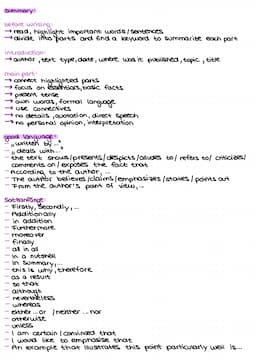 Summary:
before writing:
→ read, highlight important words/sentences
→ divide into parts and find a keyword to summarize each part
introduction:
→ author, text type, date, where was it published, topic, title
main part:
→ connect highlighted parts
→ focus on essentials, basic facts
→ present tense
→ own words, formal language
→ use connectives
→ no details, quotation, direct speech
→ no personal opinion, interpretation
good language:
- „written by ..."
- „deals with..."
- the text shows/presents/depicts/alludes to/refers to/criticizes/
comments on/exposes the fact that
- According to the author, ...
- The author believes/claims/emphasizes/states/points out
- From the author's point of view,...
Satzanfänge:
- Firstly, Secondly,...
- Additionally
- in addition
- Furthermore
- moreover
- finally
- all in all
- in a nutshell
- in summary,...
- this is why, therefore
- as a result
- so that
- although
- nevertheless
- whereas
- either...or / neither...nor
- otherwise
- unless
- I am certain/convinced that
- I would like to emphasise that
- An example that illustrates this point particularly well is...